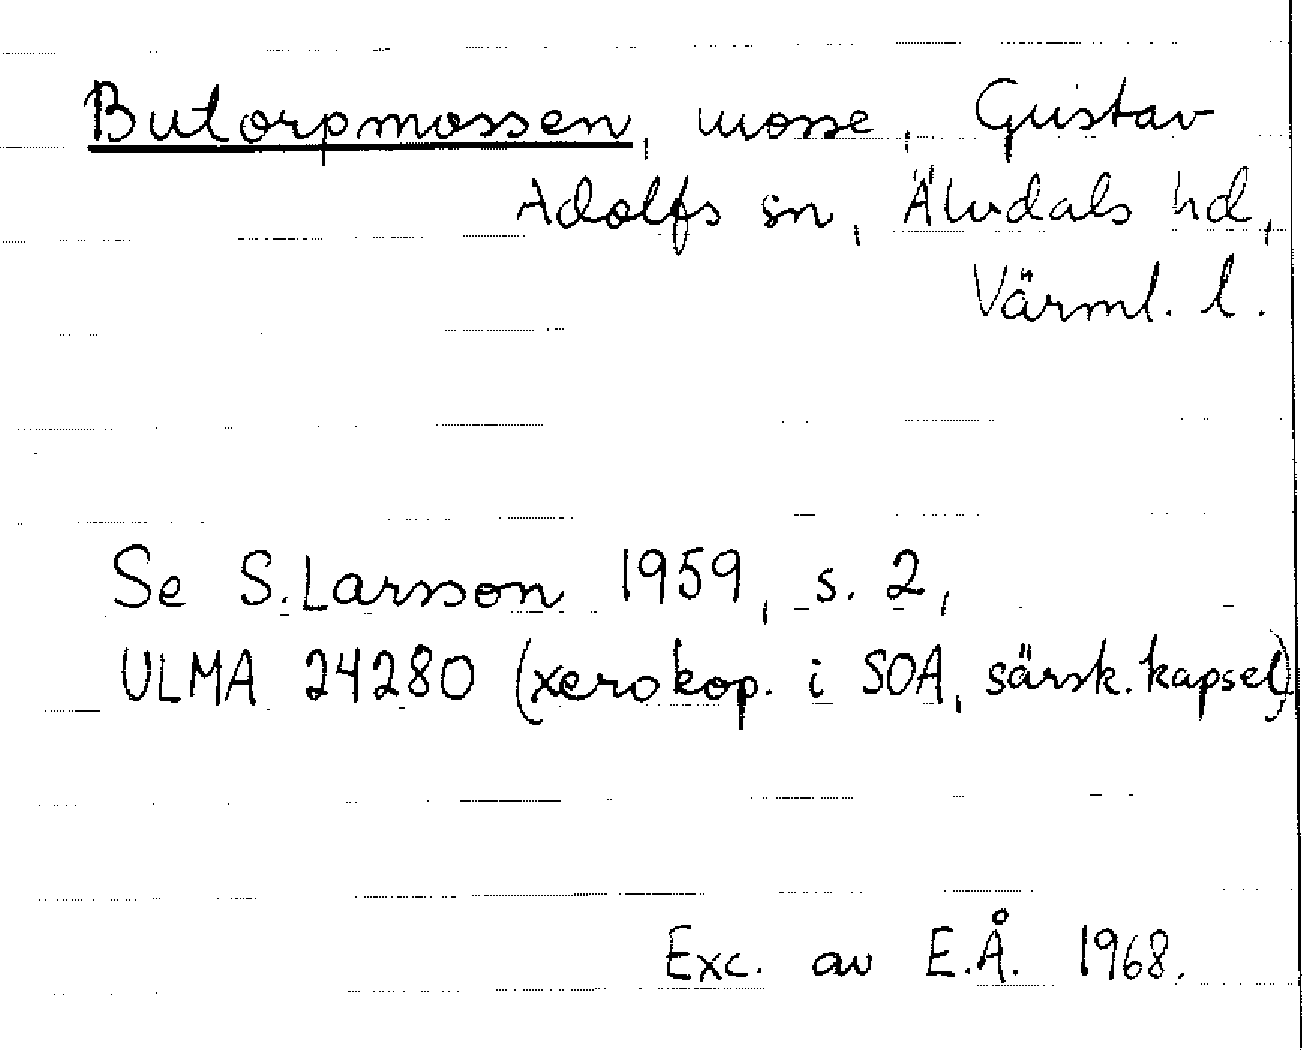 Butorpmossen, mosse, Gustav
Adolfs sn, Älvdals hd,
Värml. l.
Se S. Larsson 1959, s. 2,
ULMA 24280 (xerokop. i SOA, särsk. kapsel)
Exc. av E.Å. 1968.